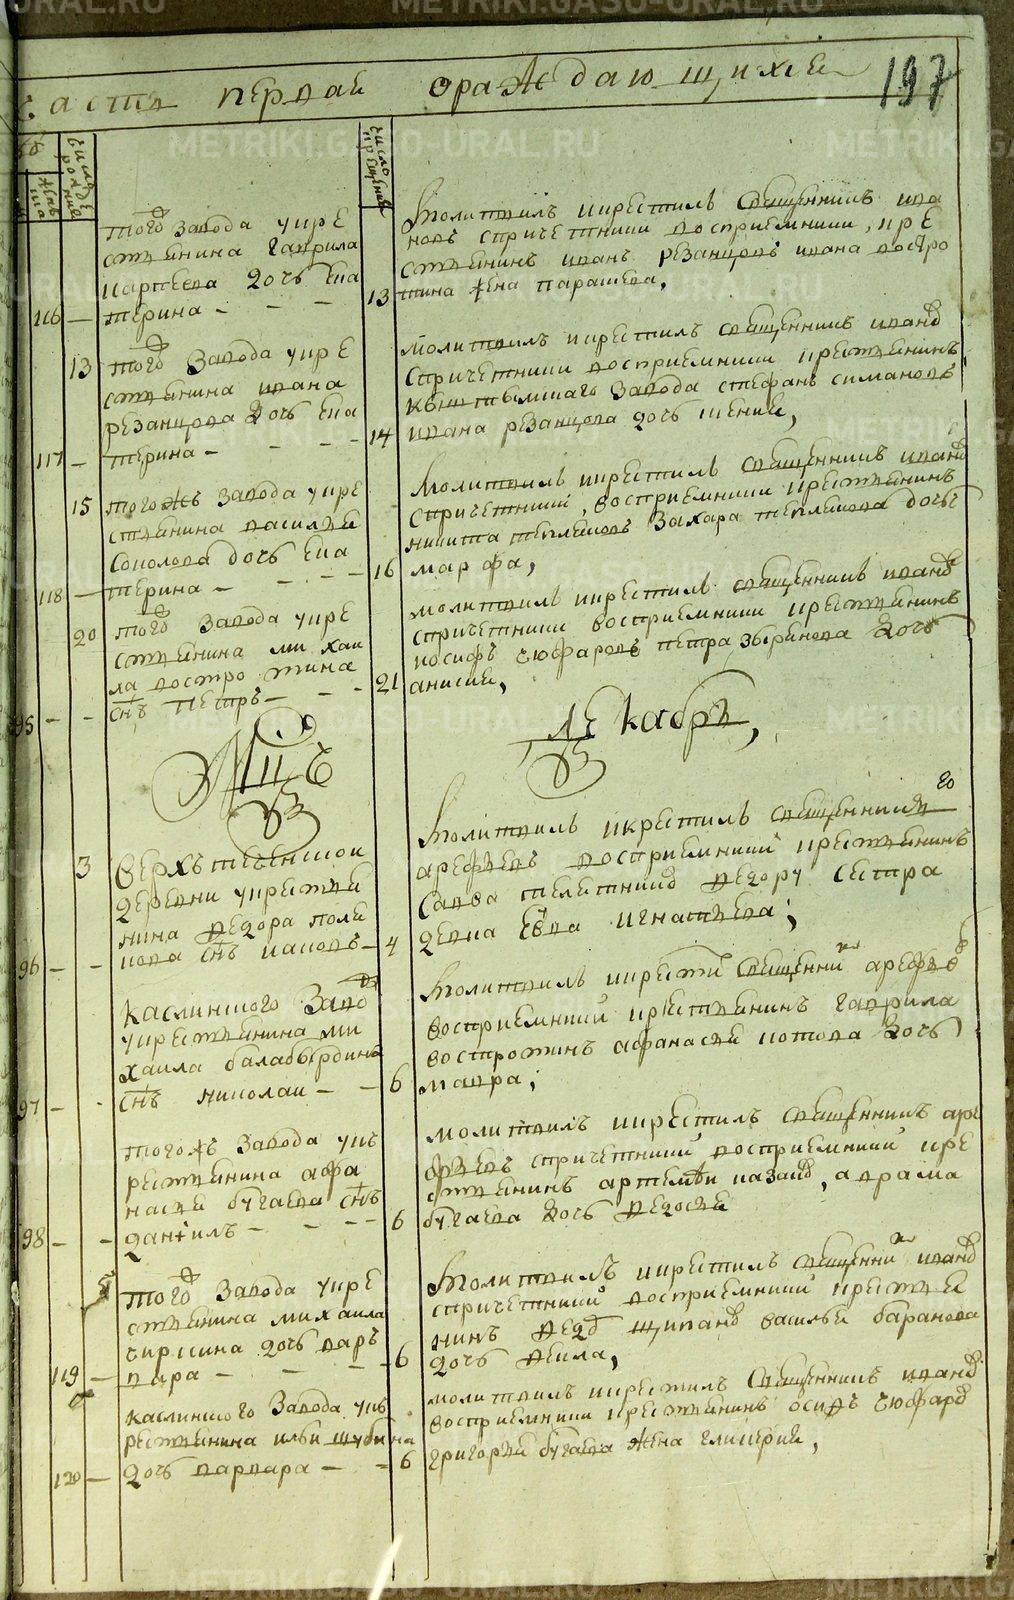 часть первая ораждающихся 197
число рождения
число крещения
женска
того завода укре
стьянина гаврила
карпеева дочь ека
116 — терина — 13
молитвилъ икрестилъ священникъ ива
новъ спричетники восприемники, кре
стьянинъ иванъ резанцовъ ивана востро
тина жена парасковья,
13 того завода укре
стьянина ивана
резанцова дочь ека
117 — терина — 14
молитвилъ икрестилъ священникъ иванъ
спричетники восприемники крестьянинъ
кыштымскаго завода стефанъ симановъ
ивана резанцова дочь
15 тогожъ завода укре
стьянина василья
соколова дочь ека
118 — терина — 16
молитвилъ икрестилъ священникъ иванъ
спричетники, восприемники крестьянинъ
никита теплыковъ захара теплякова дочь
марфа,
20 того завода укре
стьянина михаи
ла востротина
95 — — снъ петръ — 21
молитвилъ икрестилъ священникъ иванъ
спричетники восприемники крестьянинъ
иосифъ чюфаровъ петра дочь
анисия,
Декабрь,
3 верхъ
деревни укрестья
нина федора поле
96 — — кова снъ иаковъ — 4
молитвилъ икрестилъ священникъ
арефьевъ восприемники крестьянинъ
савва федору сестра
девка евва игнатьева;
каслинского завода
укрестьянина ми
хаила балабырдина
97 — - снъ николаи — — 6
молитвилъ икрести священникъ арефьевъ
восприемники крестьянинъ гаврила
востротинъ афанасья котова дочь
мавра;
тогожъ завода укъ
рестьянина афа
насья бугаева снъ
98 — — данiилъ — — 6
молитвилъ икрестилъ священникъ аре
фьевъ спричетники восприемники кре
стьянинъ артемеи , аврама
бугаева дочь федосья
5 того завода укре
стьянина михаила
чиркина дочь варъ
119 — вара — — 6
молитвилъ икрестилъ священникъ иванъ
спричетники восприемники крестья
нинъ федоръ щипанъ василья баранова
дочь фекла,
каслинского завода укъ
рестьянина ильи шубина
120 — дочь варвара — — 6
молитвилъ икрестилъ священникъ иванъ
восприемники крестьянинъ осипъ чюфаровъ
григорья бугаева жена гликерия,
METRIKI.GASO-URAL.RU